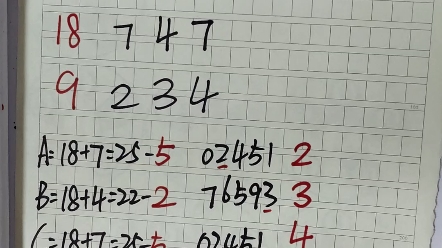 18 7 4 7
9 2 3 4
A=18+7=25-5 02451 2
B=18+4=22-2 76593 3
C=18+7=25-5 02451 4